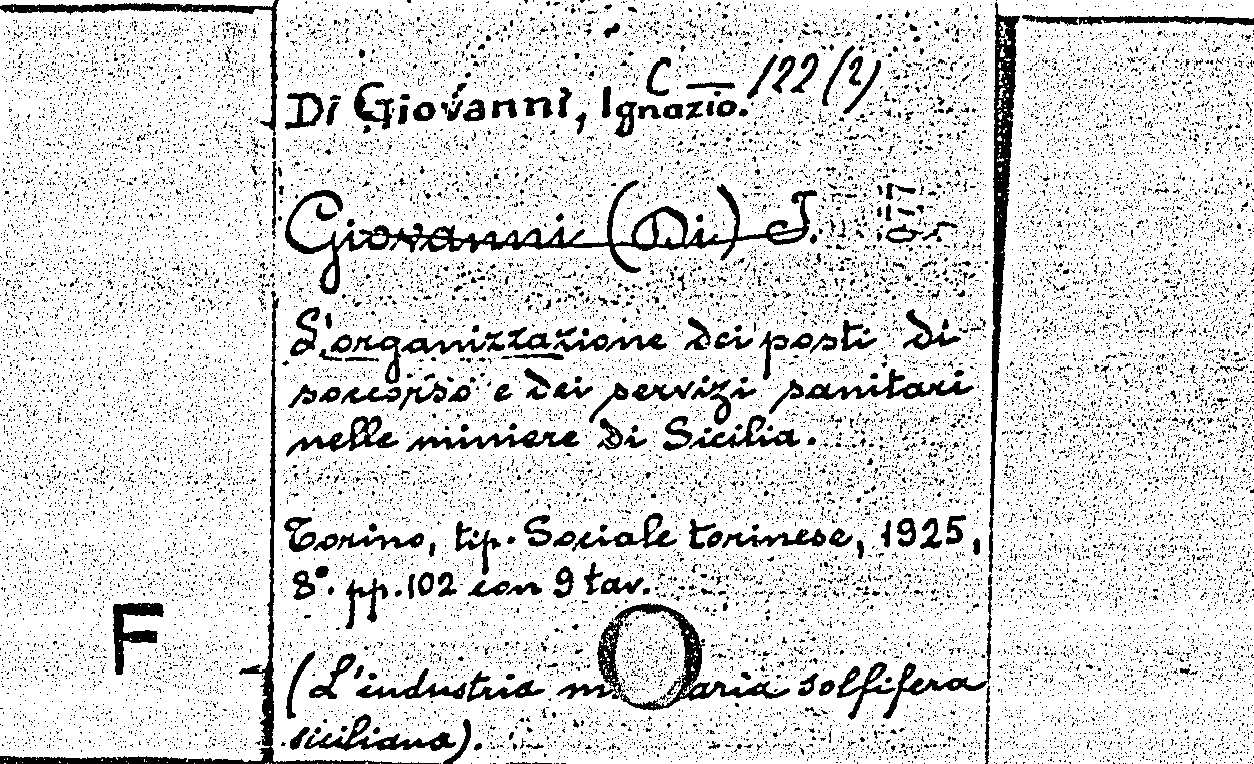 C — 122 (2)
Di Giovanni, Ignazio.
Giovanni (Di) I.
L'organizzazione dei posti di
soccorso e dei servizi sanitari
nelle miniere di Sicilia.
Torino, tip. Sociale torinese, 1925,
8°. pp. 102 con 9 tav.
F
(L'industria solfifera
siciliana).